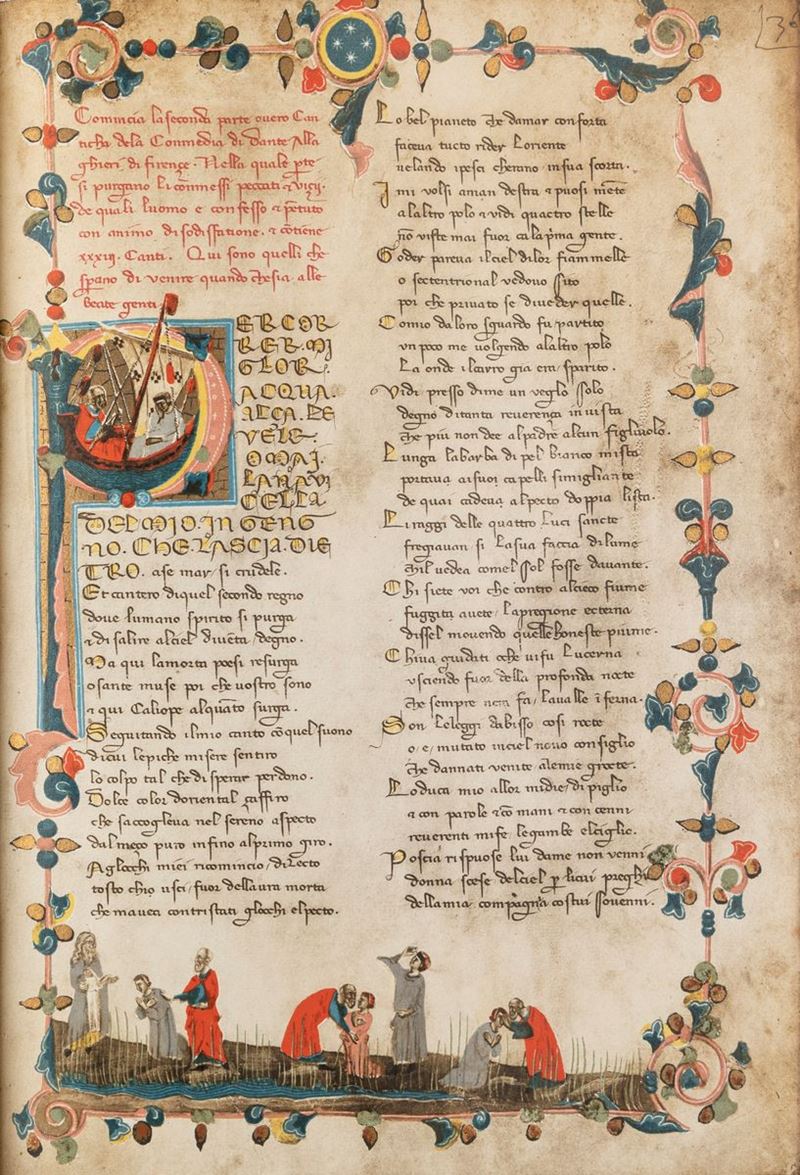 Comincia la seconda parte overo Can
ticha dela Commedia di Dante Alla
ghieri di firençe. Nella quale pte
si purgano li commessi peccati ⁊ viçij.
de quali luomo e confesso ⁊ pentuto
con animo di sodisfatione. ⁊ cōtiene
xxxiij. Canti. Qui sono quelli che
sperano di venire quando che sia alle
beate genti
PER COR
RER. MI
GLOR.
ACQUA.
ALÇA. LE
VELE.
OMAI.
LA NAVI
CELLA
DEL MIO. INGENG
NO. CHE. LASCIA. DIE
TRO. a se mar si crudele.
Et cantero di quel secondo regno
dove lumano spirito si purga
⁊ di salire al ciel diventa degno.
Ma qui la morta poesi resurga
o sante muse poi che vostro sono
⁊ qui Caliope alquāto surga.
Seguitando il mio canto cō quel suono
di cui le piche misere sentiro
lo colpo tal che disperar perdono.
Dolce color doriental çaffiro
che saccoglieva nel sereno aspecto
dal meço puro infino al primo giro.
Agliocchi miei ricomincio dilecto
tosto chio usci fuor dellaura morta
che mavea contristati gliocchi el pecto.
Lo bel pianeto che damar conforta
faceva tucto rider loriente
velando i pesci cherano in sua scorta.
I mi volsi a man destra ⁊ puosi mēte
a laltro polo ⁊ vidi quactro stelle
nō viste mai fuor ca la pͥma gente.
Goder pareva il ciel di lor fiammelle
o settentrional vedovo sito
poi che privato se di veder quelle.
Comio da loro sguardo fu partito
un poco me volgendo a laltro polo
La onde il carro gia era sparito.
Vidi presso di me un veglo solo
degno di tanta reverença in vista
che piu non dee a padre alcun figliuolo.
Lunga la barba di pel bianco mista
portava a i suoi capelli simigliante
de quai cadeva al pecto doppia lista.
Li raggi delle quattro luci sancte
fregiavan si la sua faccia di lume
chil vedea comel sol fosse davante.
Chi siete voi che contro al cieco fiume
fuggita avete la pregione ecterna
dissel movendo quelle honeste piume.
Chi va guidati o che vi fu lucerna
uscendo fuor della profonda nocte
che sempre nera fa la valle īferna.
Son le leggi dabisso cosi rocte
o e mutato in ciel novo consiglio
che dannati venite alemie grocte.
Lo duca mio allor mi die di piglio
⁊ con parole ⁊ cō mani ⁊ con cenni
reverenti mi fe le gambe el ciglio.
Poscia rispuose lui da me non venni
donna scese del ciel per li cui preghi
della mia compagna costui sovenni.